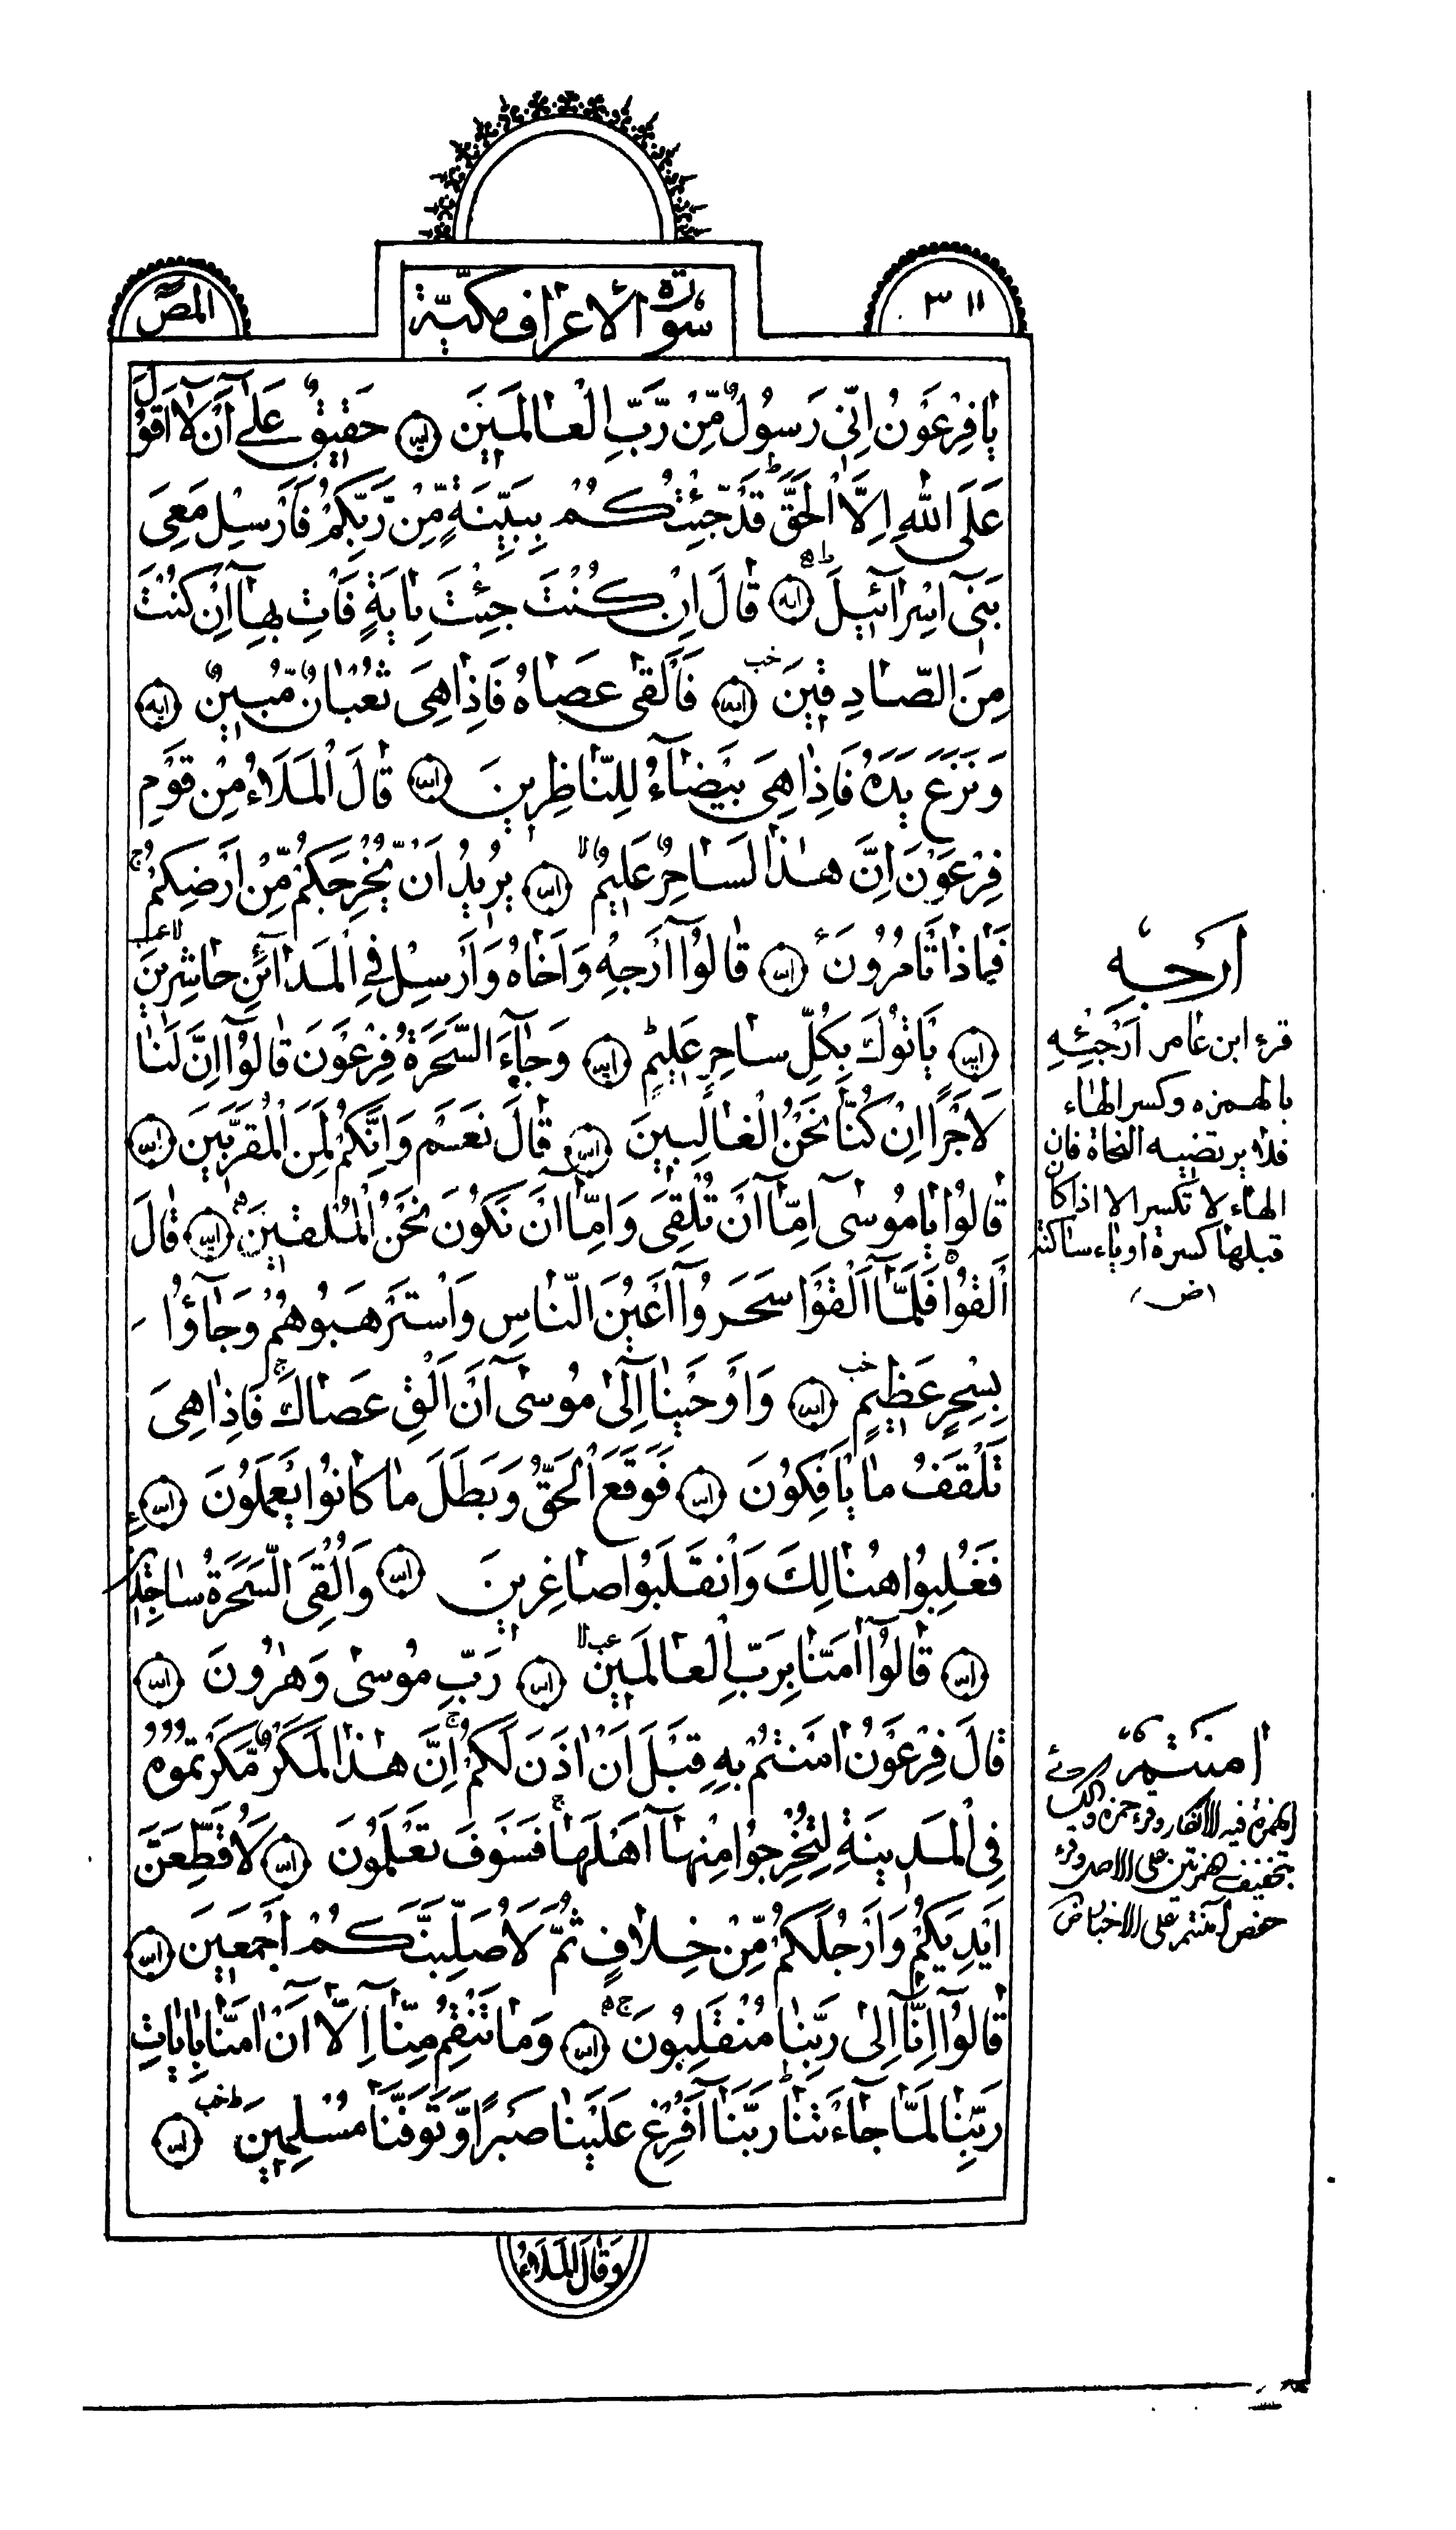 ٣١١
سورة الاعراف مكيّة
المص
يَا فِرْعَوْنُ اِنّى رَسُولٌ مِّنْ رَّبِّ الْعَالَمَينَ حَقيقٌ عَلىٓ اَنْ لَآ اَقُولَ
عَلَى اللهِ اِلَّا الْحَقَّ ط قَدْ جِّئْتُكُمْ بِبَيِّنَةٍ مِّنْ رَّبِّكُمْ فَاَرْسِلْ مَعِىَ
بَنىٓ اِسْرَآئيلَ ط قَالَ اِنْ كُنْتَ جِئْتَ بِايَةٍ فَاْتِ بِهَآ اِنْ كُنْتَ
مِنَ الصَّادِقينَ فَاَلْقى عَصَاهُ فَاِذَا هِىَ ثُعْبَانٌ مُّبينٌ
وَنَزَعَ يَدَهُ فَاِذَا هِىَ بَيْضَآءُ لِلنَّاظِرينَ قَالَ الْمَلَاءُ مِنْ قَوْمِ
فِرْعَوْنَ اِنَّ هٰذَا لَسَاحِرٌ عَليمٌ لا يُريدُ اَنْ يُّخْرِجَكُمْ مِّنْ اَرْضِكُمْ ج
فَمَاذَا تَاْمُرُونَ قَالُوٓا اَرْجِهْ وَاَخَاهُ وَاَرْسِلْ فِى الْمَدَآئِنِ حَاشِرينَ لا
يَاْتُوكَ بِكُلِّ سَاحِرٍ عَليمٍ ط وَجَآءَ السَّحَرَةُ فِرْعَوْنَ قَالُوٓا اِنَّ لَنَا
لَاَجْرًا اِنْ كُنَّا نَحْنُ الْغَالِبينَ قَالَ نَعَمْ وَاِنَّكُمْ لَمِنَ الْمُقَرَّبينَ
قَالُوا يَا مُوسٰىٓ اِمَّآ اَنْ تُلْقِىَ وَاِمَّآ اَنْ نَكُونَ نَحْنُ الْمُلْقينَ قَالَ
اَلْقُوا فَلَمَّآ اَلْقَوْا سَحَرُوٓا اَعْيُنَ النَّاسِ وَاسْتَرْهَبُوهُمْ وَجَآؤُا
بِسِحْرٍ عَظيمٍ وَاَوْحَيْنَآ اِلٰى مُوسٰىٓ اَنْ اَلْقِ عَصَاكَ ج فَاِذَا هِىَ
تَلْقَفُ مَا يَاْفِكُونَ فَوَقَعَ الْحَقُّ وَبَطَلَ مَا كَانُوا يَعْمَلُونَ
فَغُلِبُوا هُنَالِكَ وَانْقَلَبُوا صَاغِرينَ وَاُلْقِىَ السَّحَرَةُ سَاجِدينَ
قَالُوٓا اٰمَنَّا بِرَبِّ الْعَالَمينَ لا رَبِّ مُوسٰى وَهٰرُونَ
قَالَ فِرْعَوْنُ اٰمَنْتُمْ بِهِ قَبْلَ اَنْ اٰذَنَ لَكُمْ ج اِنَّ هٰذَا لَمَكْرٌ مَّكَرْتُمُوهُ
فِى الْمَدينَةِ لِتُخْرِجُوا مِنْهَآ اَهْلَهَا ج فَسَوْفَ تَعْلَمُونَ لَاُقَطِّعَنَّ
اَيْدِيَكُمْ وَاَرْجُلَكُمْ مِّنْ خِلَافٍ ثُمَّ لَاُصَلِّبَنَّكُمْ اَجْمَعينَ
قَالُوٓا اِنَّآ اِلٰى رَبِّنَا مُنْقَلِبُونَ ج وَمَا تَنْقِمُ مِنَّآ اِلَّآ اَنْ اٰمَنَّا بِاٰيَاتِ
رَبِّنَا لَمَّا جَآءَتْنَا ط رَبَّنَآ اَفْرِغْ عَلَيْنَا صَبْرًا وَّتَوَفَّنَا مُسْلِمينَ
وَقَالَ الْمَلَاءُ
اَرْجِهِ
قرء ابن عامر ارجِئهِ
بالهمزه وكسر الهاء
فلا يرتضيه النحاة فان
الهاء لا تكسر الا اذا كان
قبلها كسرة او ياء ساكنة
(ض)
اٰمنتم
الهمزة فيه للانكار وقرء حمزه و
بتخفيف همزتين على الاصل وقرء
حفص آمنتم على الاخبار ض